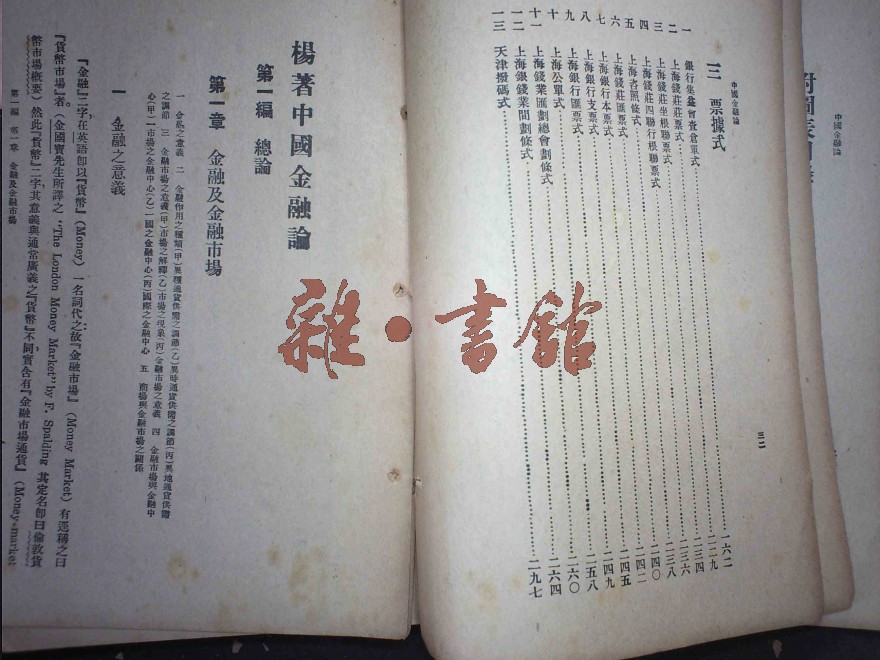 中國金融論
中國金融論
三 票據式
一 銀行集會查倉單式 一六二
二 上海錢莊莊票式 一二九
三 上海錢莊坐根聯票式 一三四
四 上海錢莊四聯行根聯票式 一三六
五 上海咨照條式 一三八
六 上海錢莊匯票式 一四〇
七 上海銀行本票式 一四二
八 上海銀行支票式 一四五
九 上海銀行匯票式 一四九
十 上海公單式 一五八
十一 上海錢業匯劃總會劃條式 一六〇
十二 上海銀錢業間劃條式 一六四
十三 天津撥碼式 二九七
楊著中國金融論
第一編 總論
第一章 金融及金融市場
一 金融之意義 二 金融作用之種類(甲)異種通貨供需之調節(乙)異時通貨供需之調節(丙)異地通貨供需
之調節 三 金融市場之意義(甲)市場之解釋(乙)市場之現象(丙)金融市場之意義 四 金融市場與金融中
心(甲)一市場之金融中心(乙)一國之金融中心(丙)國際之金融中心 五 商場與金融市場之關係
一 金融之意義
『金融』二字,在英語卽以『貨幣』(Money)一名詞代之,故『金融市場』(Money Market)有迻稱之曰
『貨幣市場』者。(金國寶先生所譯之 "The London Money Market" by F. Spalding 其定名卽曰倫敦貨
幣市場概要)然此『貨幣』二字,其意義與通常廣義之『貨幣』不同,實含有『金融市場通貨』(Money-market
第一編 第一章 金融及金融市場
雜·書館